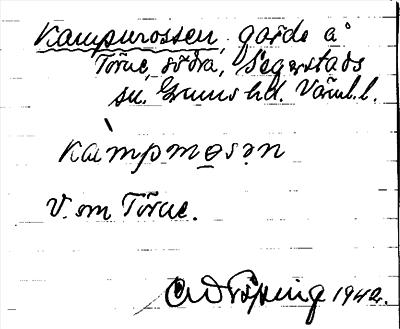 Kampmossen, gärde å
Törne, södra, Segerstads
sn. Grums hd. Värml. l.
kàmpmosən
V. om Törne.
1942.